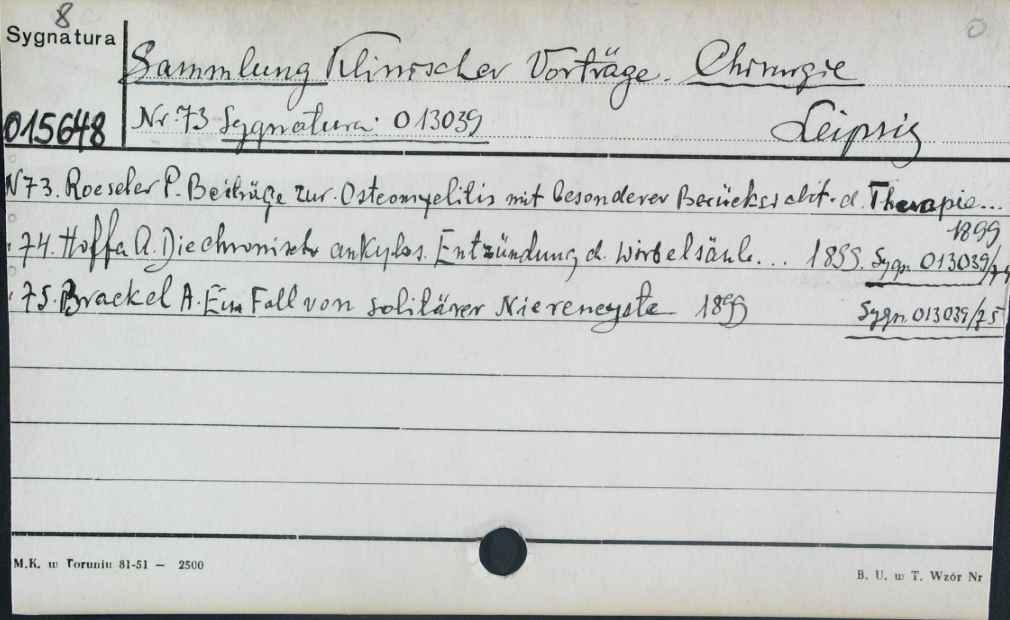 8
Sygnatura
Sammlung Klinischer Vorträge. Chirurgie
015648
Nr. 73 Sygnatura: 013039 Leipzig
N 73. Roeseler P. Beiträge zur Osteomyelitis mit besonderer Berücksicht. d. Therapie...
1899
" 74. Hoffa A. Die chronisch ankylos. Entzündung d. Wirbelsäule... 1899. Sygn. 013039/74
" 75. Brackel A. Ein Fall von solitärer Nierencyste 1899 Sygn. 013039/75
M.K. w Toruniu 81-51 — 2500
B. U. w T. Wzór Nr